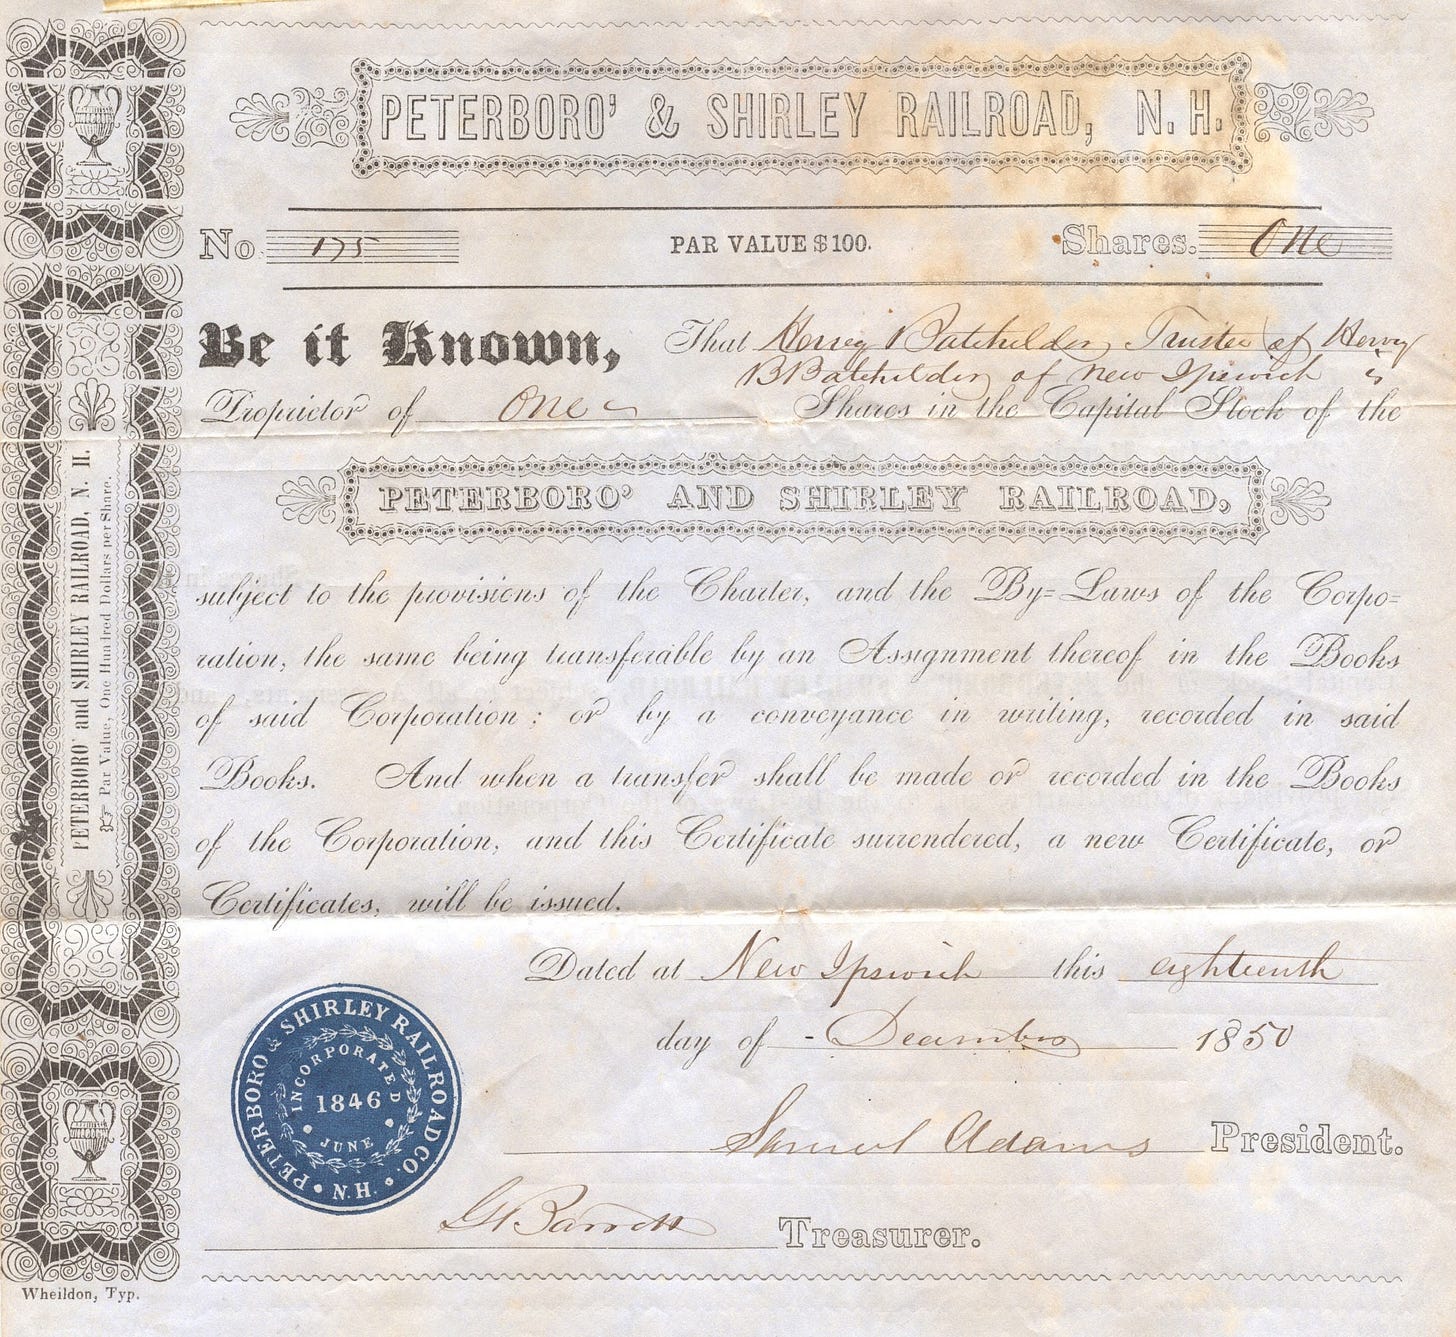 PETERBORO' & SHIRLEY RAILROAD, N. H.
No. 175 PAR VALUE $100. Shares. One
Be it Known, That Hervey Batchelder Trustee of Hervey
B Batchelder of New Ipswich is
Proprietor of One Shares in the Capital Stock of the
PETERBORO' AND SHIRLEY RAILROAD,
subject to the provisions of the Charter, and the By=Laws of the Corpo=
ration, the same being transferable by an Assignment thereof in the Books
of said Corporation; or by a conveyance in writing, recorded in said
Books. And when a transfer shall be made or recorded in the Books
of the Corporation, and this Certificate surrendered, a new Certificate, or
Certificates, will be issued.
Dated at New Ipswich this eighteenth
day of December 1850
Samuel Adams President.
Barrett Treasurer.
PETERBORO & SHIRLEY RAILROAD CO.
N.H.
INCORPORATED
1846
JUNE
PETERBORO' and SHIRLEY RAILROAD, N. H.
Par Value, One Hundred Dollars per Share.
Wheildon, Typ.